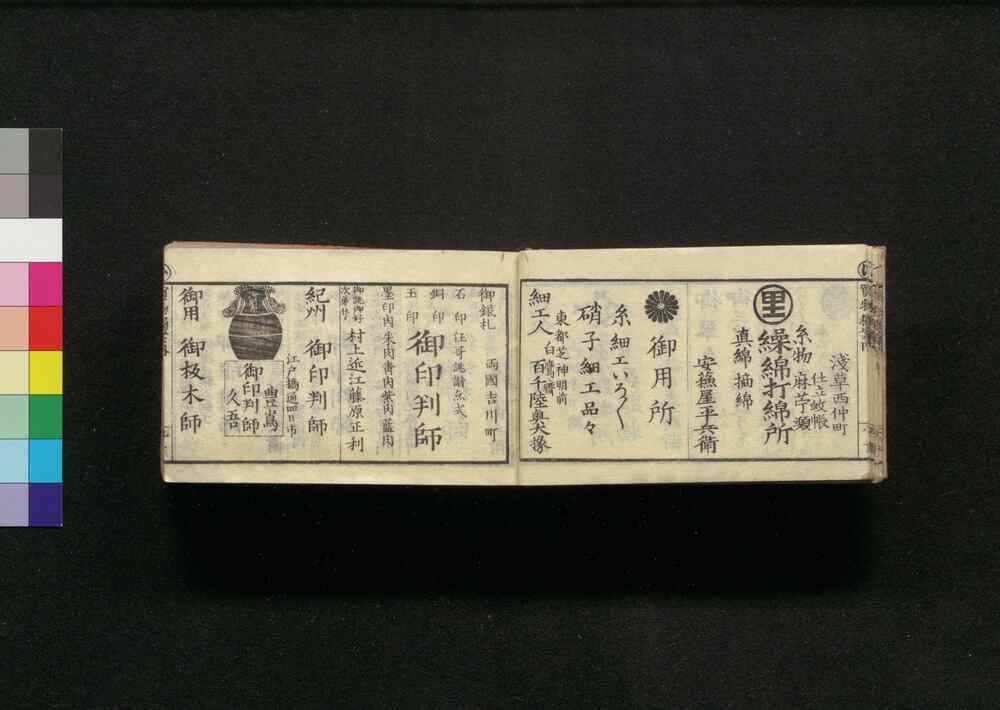 淺草西仲町
仕立蚊帳
糸物
麻苧類
里
繰綿打綿所
真綿
摘綿
安藤屋平兵衛
御用所
糸細工いろ〳〵
硝子細工品々
東都芝神明前
白鷺軒
細工人
百千陸奥大掾
両國吉川町
御銀札
石印
銅印
玉印
御印判師
墨印肉
朱肉
青肉
紫肉
藍肉
村上近江藤原正利
紀州
御印判師
江戸橋通四日市
豊嶌
御印判師
久吾
御用
御板木師